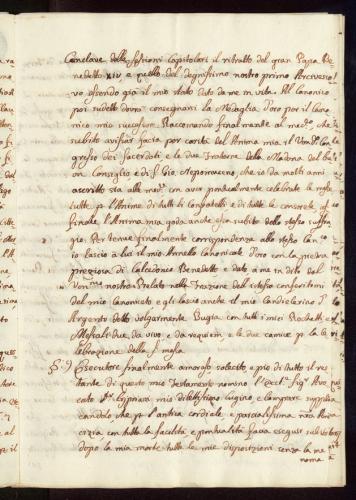 Conclave delle sessioni Capitolari il ritratto del gran Papa Be
nedetto XIV e quello del degnissimo nostro primo Arcivesco
vo essendo già il mio stato dato da me in vita. Al Canonico
poi sudetto dovrà consegnarsi la Medaglia d'oro per il Cano
nico mio successore. Raccomando finalmente al med.mo che
subito avisar facia per carità dell'Anima mia il Ven.do Con
gresso dei Sacerdoti e le due Fraterne della Madona del bu
on Consiglio e di S. Gio. Nepomuceno, che io da molti anni
ascritto sia alle med.me con avere pontualmente celebrate le messe
tutte p l'Anime di tutti li Confratelli e di tutte le consorele af
finche l'Anima mia goda anche essa subito dello stesso suffra
gio. Per tenue finalmente corrispondenza allo stesso Can
co lascio a lui il mio Annello Canonicale d'oro con la piedra
preziosa di Calcedonia Benedetto e dato a me in dito dal
nostro Prelato nella Fonzione dell'istesso conferitomi
del mio Canonicato e gli lascio anche il mio Candieliero d'
Argento detto volgarmente Bugia con tutti i miei Rochetti
Messali due, da vivo e da requiem e le due camise p la ce
lebrazione della S. messa.
Esecutore finalmente amoroso solecito e pio di tutto il res
tante di questo mio testamento nomino l'Ecc.mo Sig.r Avo
cato mio dilettissimo cugino e compare suppli
candolo che p l'antica cordiale, e parcialissima nra Ami
cizia con tutta la facilità e pontualità facia eseguir subito
dopo la mia morte tutte le mie disposizioni senza la me
noma